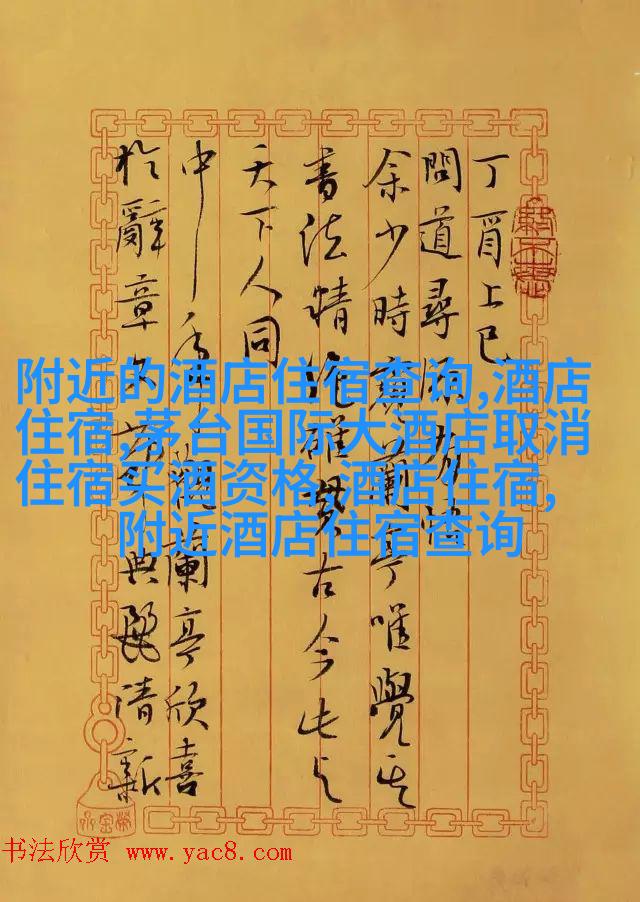 丁酉上巳
問道尋
余少時蘭亭唯覺其
書法精絕雄古今此与
天下人同
中蘭亭欣喜
於辭章典麗清新
附近的酒店住宿查询,酒店
住宿,茅台国际大酒店取消
住宿买酒资格,酒店住宿,
附近酒店住宿查询
书法欣赏 www.yac8.com